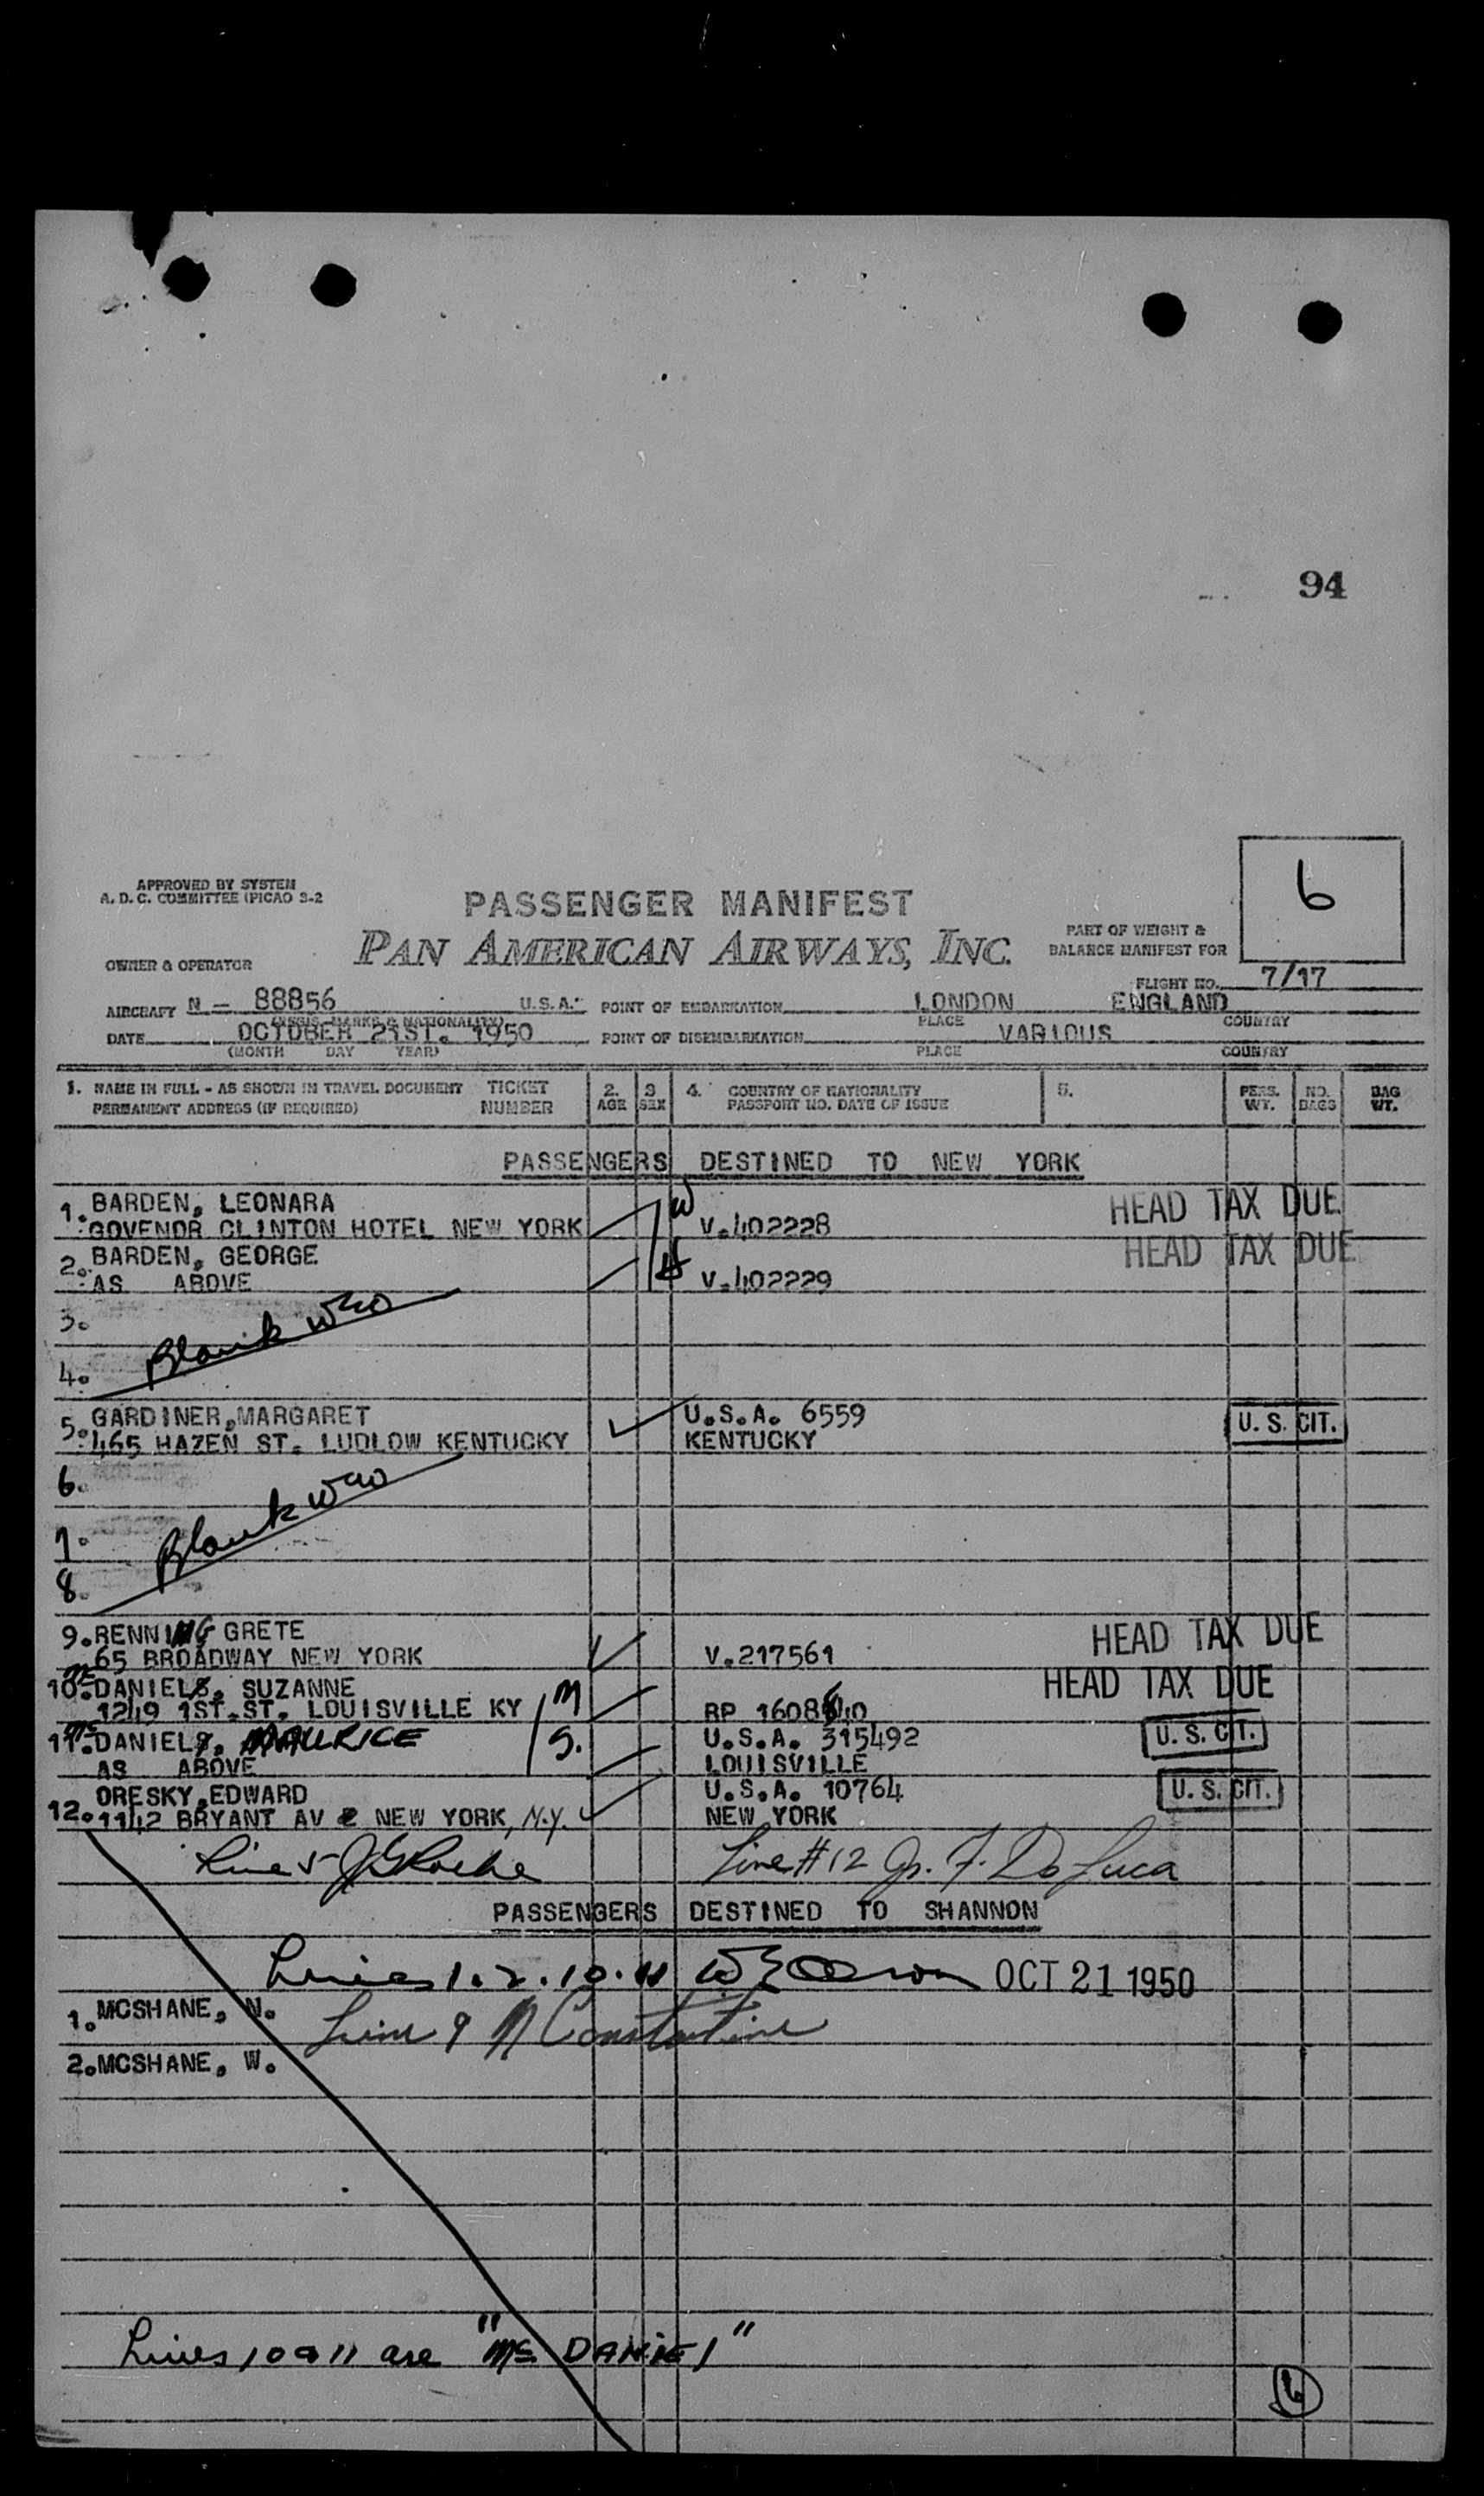 94
6
APPROVED BY SYSTEM
A. D. C. COMMITTEE (PICAO S-2
PASSENGER MANIFEST
PAN AMERICAN AIRWAYS, INC.
PART OF WEIGHT &
BALANCE MANIFEST FOR
OWNER & OPERATOR
FLIGHT NO. 7/17
AIRCRAFT N - 88856 U.S.A. POINT OF EMBARKATION LONDON ENGLAND
(REGIS. MARKS & NATIONALITY) PLACE COUNTRY
DATE OCTOBER 21ST. 1950 POINT OF DISEMBARKATION VARIOUS
(MONTH DAY YEAR) PLACE COUNTRY
1. NAME IN FULL - AS SHOWN IN TRAVEL DOCUMENT TICKET 2. 3 4. COUNTRY OF NATIONALITY 5. PERS. NO. BAG
PERMANENT ADDRESS (IF REQUIRED) NUMBER AGE SEX PASSPORT NO. DATE OF ISSUE WT. BAGS WT.
PASSENGERS DESTINED TO NEW YORK
1. BARDEN, LEONARA W HEAD TAX DUE
GOVENOR CLINTON HOTEL NEW YORK V.402228
2. BARDEN, GEORGE H HEAD TAX DUE
AS ABOVE V.402229
3.
Blank
4.
5. GARDINER,MARGARET U.S.A. 6559 U. S. CIT.
465 HAZEN ST. LUDLOW KENTUCKY KENTUCKY
6.
Blank
7.
8.
9. RENNING GRETE HEAD TAX DUE
65 BROADWAY NEW YORK V.217561
10. Mc DANIEL, SUZANNE M HEAD TAX DUE
1249 1ST.ST. LOUISVILLE KY RP 160840
11. Mc DANIEL, MAURICE S. U.S.A. 315492 U. S. CIT.
AS ABOVE LOUISVILLE
12. ORESKY,EDWARD U.S.A. 10764 U. S. CIT.
1142 BRYANT AV NEW YORK, N.Y. NEW YORK
Line 5 Line #12 De Luca
PASSENGERS DESTINED TO SHANNON
Lines 1. 2. 10. 11 OCT 21 1950
1. MCSHANE, N.
Line 9 Constantine
2. MCSHANE, W.
Lines 10 & 11 are "Mc DANIEL"
6